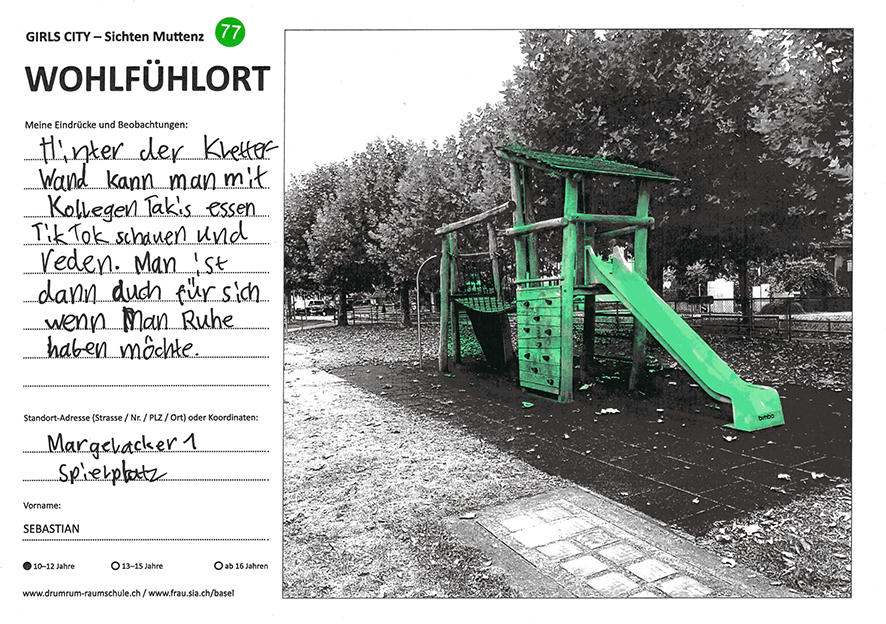 GIRLS CITY – Sichten Muttenz 77
WOHLFÜHLORT
Meine Eindrücke und Beobachtungen:
Hinter der Kletter
Wand kann man mit
Kollegen Takis essen
TikTok schauen und
reden. Man ist
dann auch für sich
wenn Man Ruhe
haben möchte.
Standort-Adresse (Strasse / Nr. / PLZ / Ort) oder Koordinaten:
Margelacker 1
Spielplatz
Vorname:
SEBASTIAN
10–12 Jahre 13–15 Jahre ab 16 Jahren
www.drumrum-raumschule.ch / www.frau.sia.ch/basel
bimbo